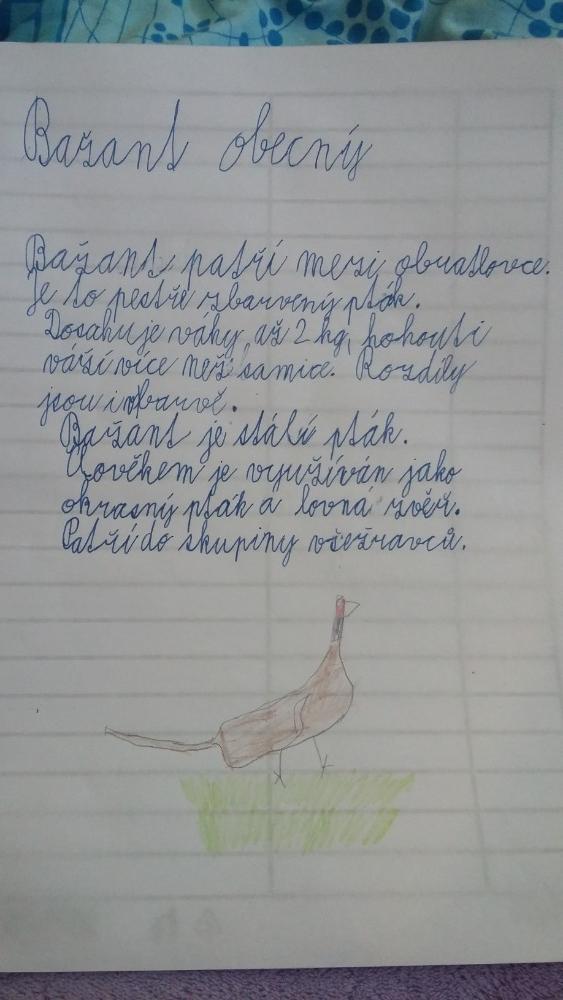 Bažant obecný
Bažant patří mezi obratlovce.
Je to pestře zbarvený pták.
Dosahuje váhy až 2 kg, kohouti
váží více než samice. Rozdíly
jsou i v barvě.
Bažant je stálý pták.
Člověkem je využíván jako
okrasný pták a lovná zvěř.
Patří do skupiny všežravců.